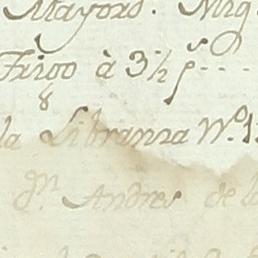 Mayord. Mig
Trigo à 3½ ps
la Libranza Nº. 1
Dn. Andres de la